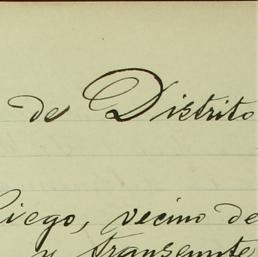 de Distrito
Riego, vecino de
y transeunte